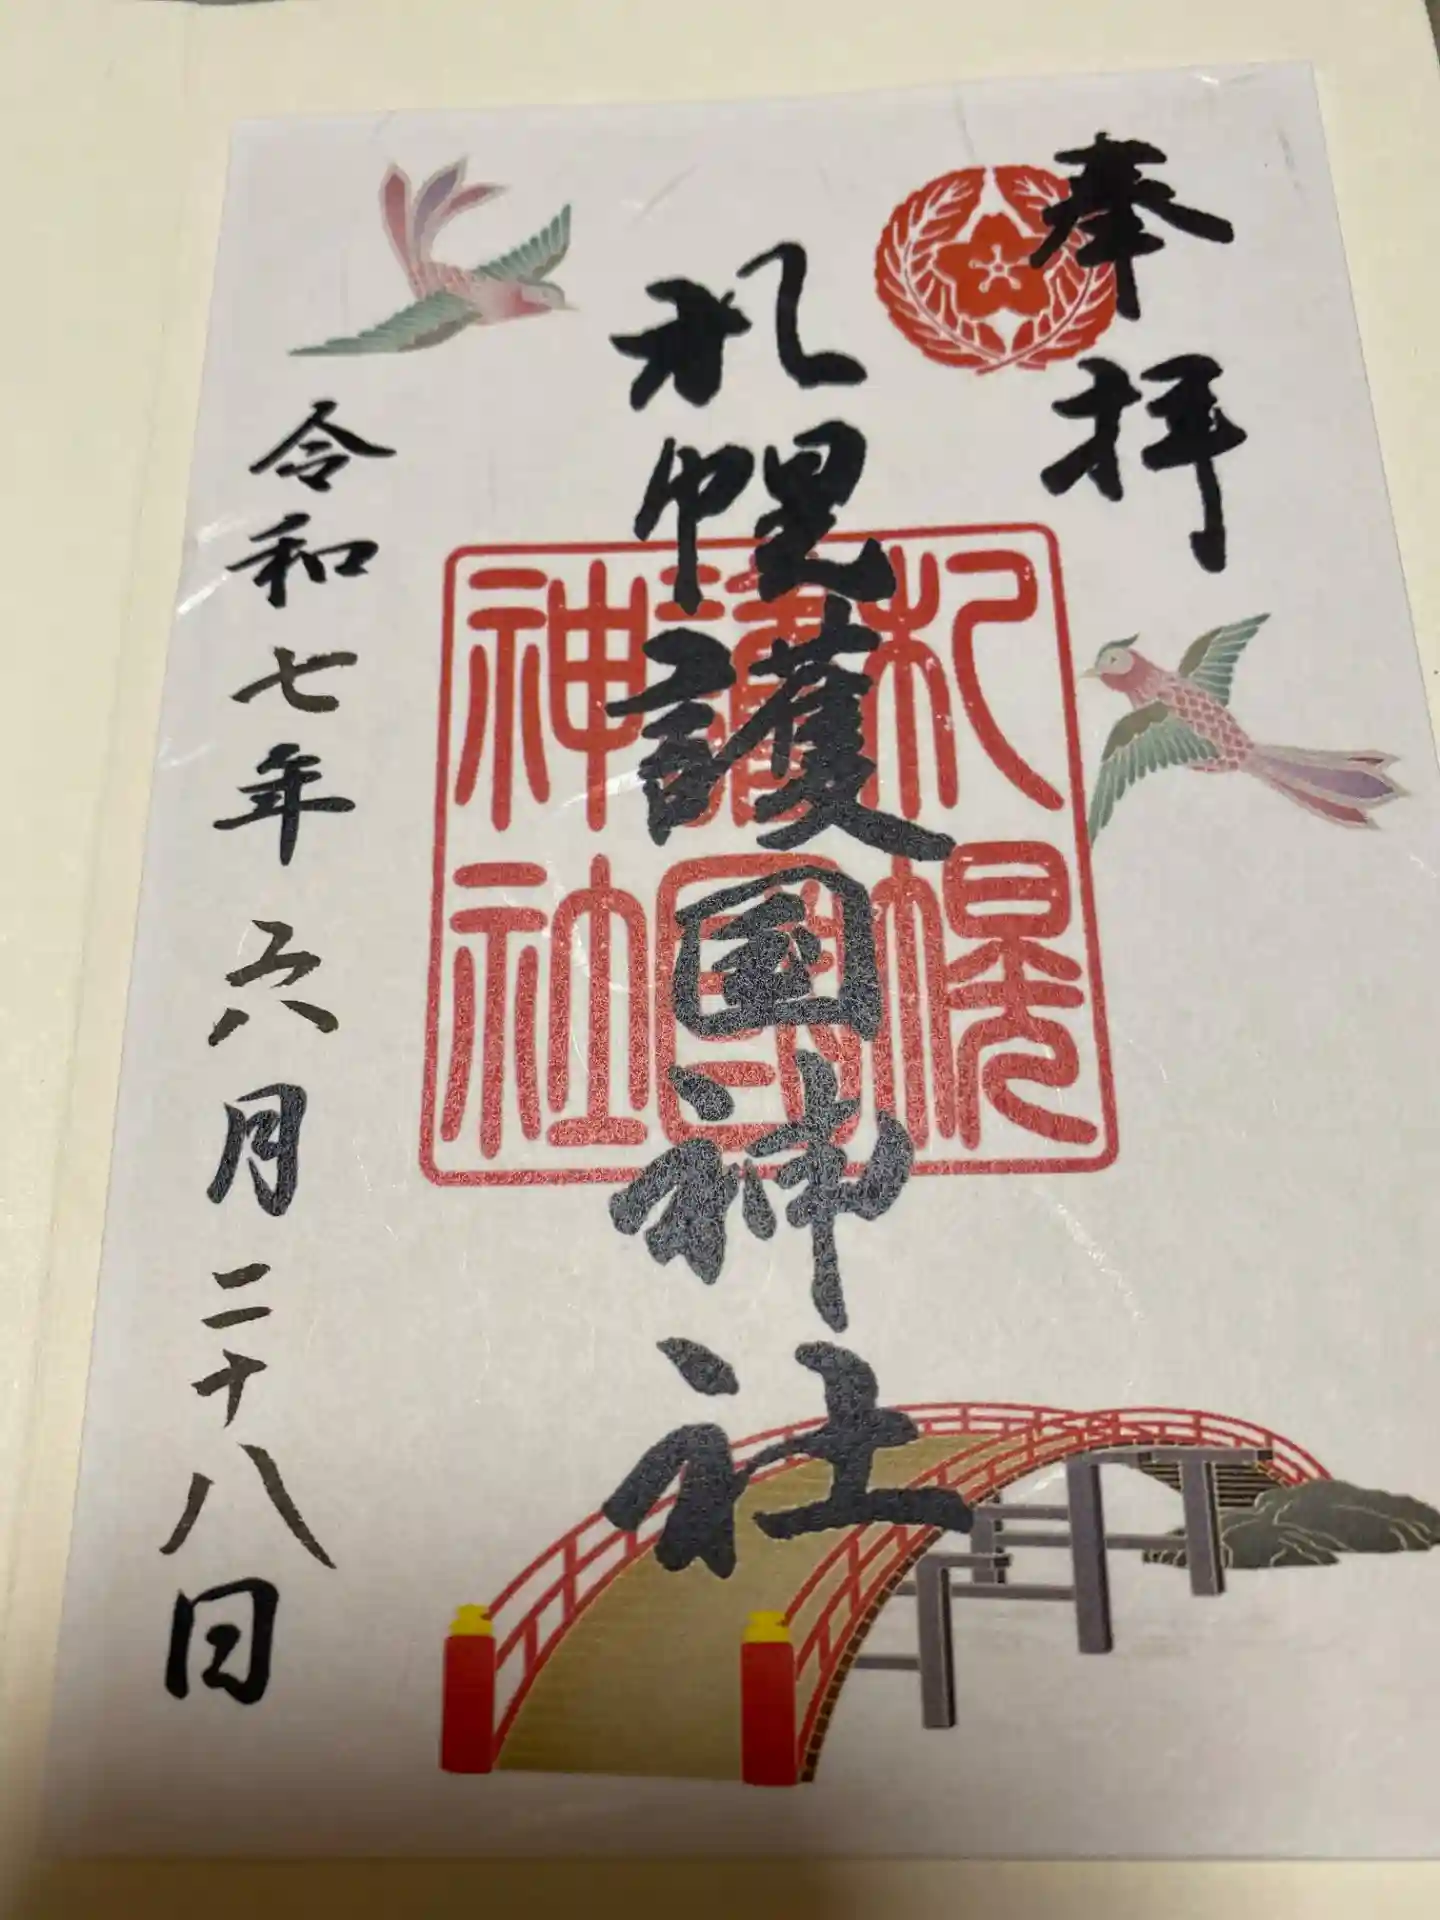 奉拝
札幌護国神社
札幌
護國
神社
令和七年六月二十八日